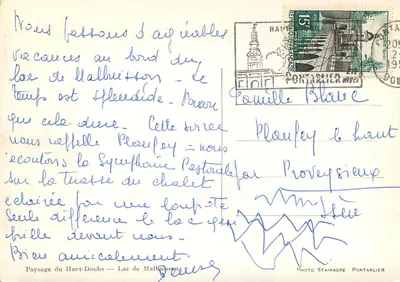 Nous passons d'agréables
vacances au bord du
lac de Malbuisson - le
temps est splendide - Pourvu
que cela dure. Cette soirée
nous rappelle Planfey = nous
écoutons la Symphonie Pastorale
sur la terrasse du chalet
éclairée par une loupiote
seule différence le lac qui
brille devant nous -
Bien amicalement
Famille Blanc
Planfey le haut
par Proveysieux
Isère
15
PONTARLIER
Paysage du Haut-Doubs — Lac de Malbuisson
PHOTO STAINACRE PONTARLIER